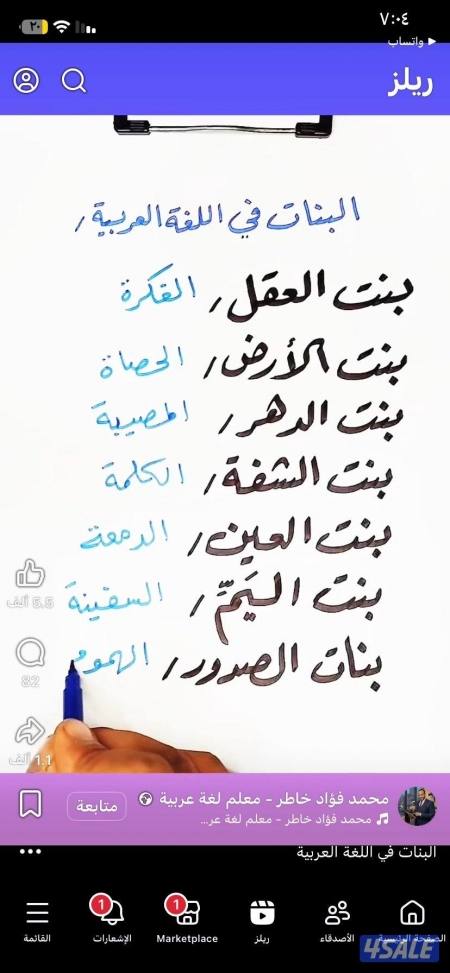 ٧:٠٤
٢٠
واتساب ◀
ريلز
البنات في اللغة العربية /
بنت العقل / الفكرة
بنت الأرض / الحصاة
بنت الدهر / المصيبة
بنت الشفة / الكلمة
بنت العين / الدمعة
بنت اليَمِّ / السفينة
بنات الصدور / الهموم
5.5 ألف
82
1.1 ألف
محمد فؤاد خاطر - معلم لغة عربية
متابعة
محمد فؤاد خاطر - معلم لغة عر...
البنات في اللغة العربية
الصفحة الرئيسية
الأصدقاء
ريلز
1
Marketplace
1
الإشعارات
القائمة
4SALE